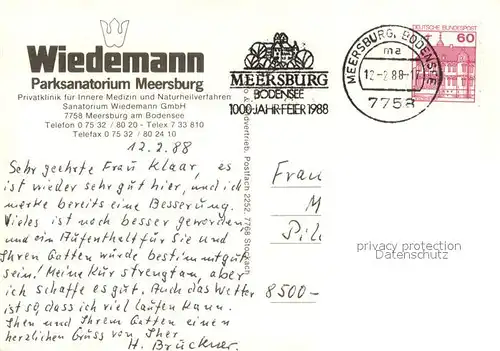 Wiedemann
Parksanatorium Meersburg
Privatklinik für Innere Medizin und Naturheilverfahren
Sanatorium Wiedemann GmbH
7758 Meersburg am Bodensee
Telefon 0 75 32 / 80 20 - Telex 7 33 810
Telefax 0 75 32 / 80 24 10
MEERSBURG
BODENSEE
1000-JAHR-FEIER 1988
MEERSBURG, BODENSEE
ma
12-2.88-17
7758
DEUTSCHE BUNDESPOST
60
12.2.88
Sehr geehrte Frau Klaar, es
ist wieder sehr gut hier, und ich
merke bereits eine Besserung.
Vieles ist noch besser geworden
und ein Aufenthalt für Sie und
Ihren Gatten würde bestimmt gut
sein! Meine Kur strengt an, aber
ich schaffe es gut. Auch das Wetter
ist so, dass ich viel laufen kann.
Ihnen und Ihrem Gatten einen
herzlichen Gruss von Ihrer
H. Brückner.
Postfach 2252, 7768 Stockach
Frau
M
Pil
8500-
privacy protection
Datenschutz